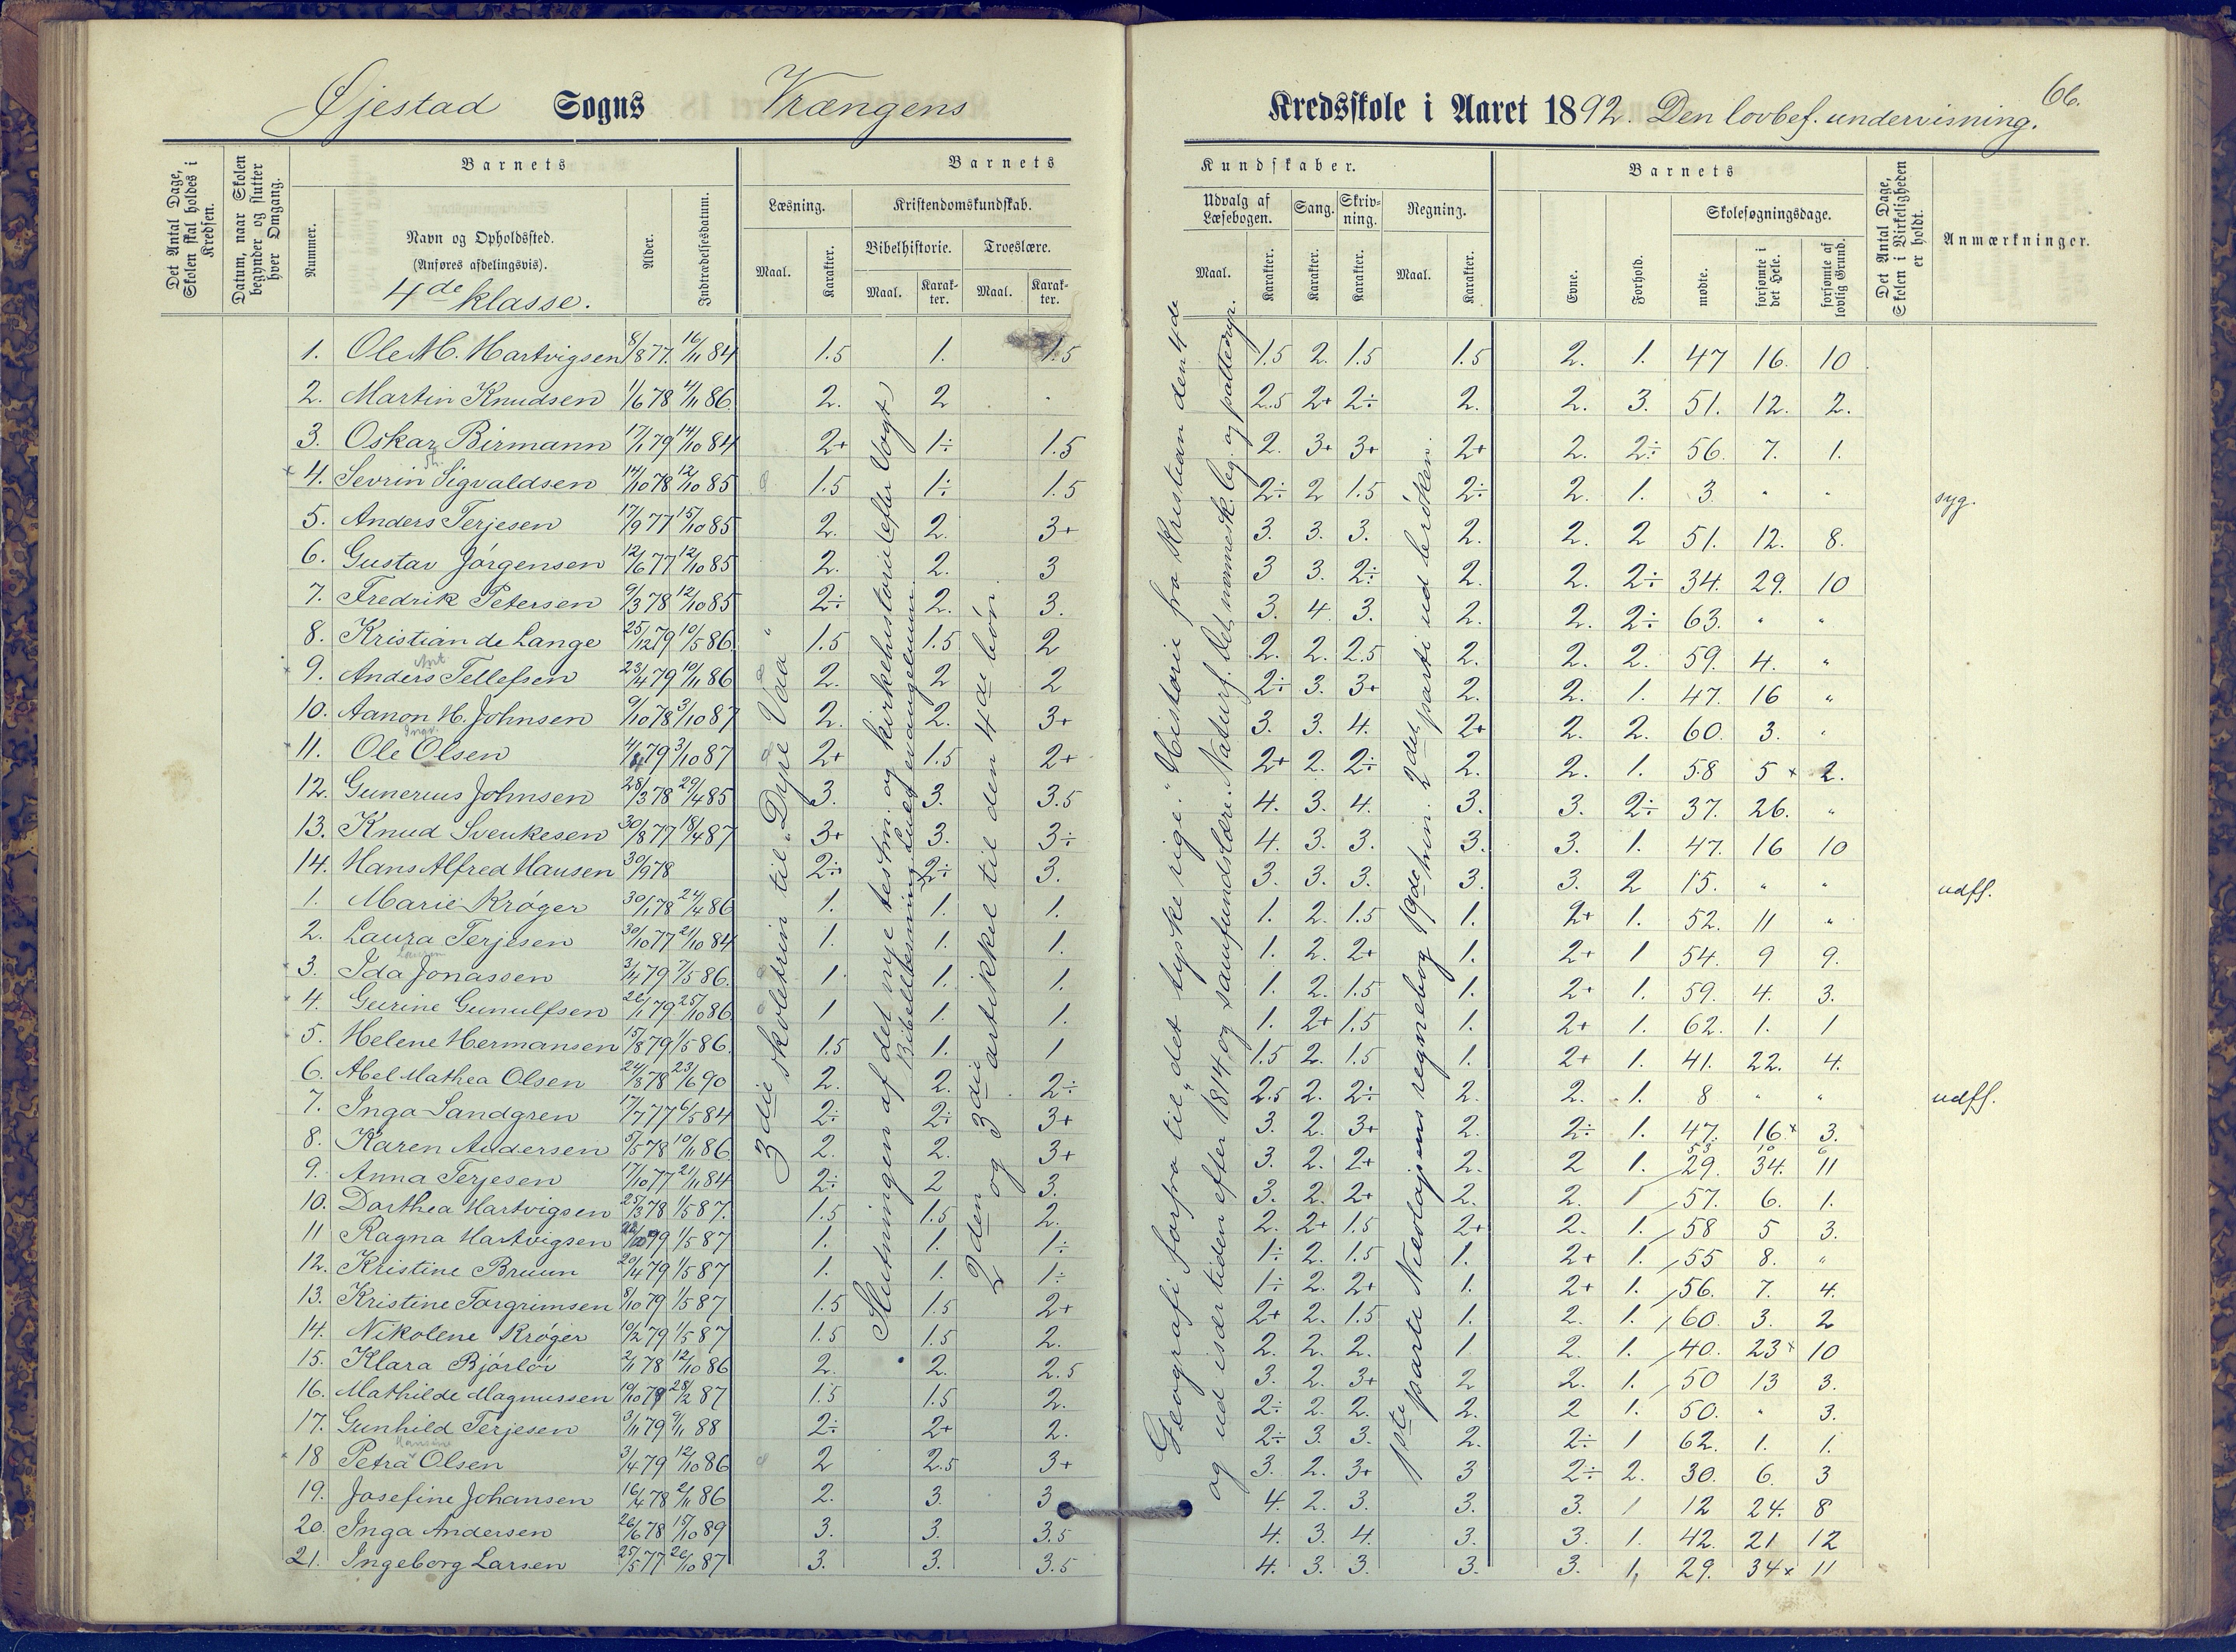 66.
Øjestad Sogns Vrængens Kredsskole i Aaret 1892. Den lovbef. undervisning.
Det Antal Dage, Skolen skal holdes i Kredsen.
Datum, naar Skolen begynder og slutter hver Omgang.
Barnets
Nummer.
Navn og Opholdssted.
(Anføres afdelingsvis).
4de klasse.
Alder.
Indtrædelsesdatum.
Barnets Kundskaber.
Læsning. Kristendomskundskab.
Bibelhistorie. Troeslære.
Maal. Karakter. Maal. Karakter. Maal. Karakter.
Udvalg af Læsebogen. Sang. Skrivning. Regning.
Maal. Karakter. Karakter. Karakter. Maal. Karakter.
Barnets
Evne. Forhold. Skolesøgningsdage.
mødte. forsømte i det Hele. forsømte af lovlig Grund.
Det Antal Dage, Skolen i Virkeligheden er holdt.
Anmærkninger.
1. Ole M. Hartvigsen 8/8 77. 16/11 84 1.5 1. 1.5 1.5 2. 1.5 1.5 2. 1. 47 16. 10
2. Martin Knudsen 1/6 78 4/11 86. 2. 2 2.5 2+ 2÷ 2. 2. 3. 51. 12. 2.
3. Oskar Birmann 17/1 79 14/10 84 2+ 1÷ 1.5 2. 3+ 3+ 2+ 2. 2÷ 56. 7. 1.
4. Sevrin Sigvaldsen 14/10 78 12/10 85 1.5 1÷ 1.5 2÷ 2 1.5 2÷ 2. 1. 3. " " syg.
5. Anders Terjesen 17/9 77 15/10 85 2. 2. 3+ 3. 3. 3. 2. 2. 2 51. 12. 8.
6. Gustav Jörgensen 12/6 77 12/10 85 2. 2. 3 3 3. 2÷ 2. 2. 2÷ 34. 29. 10
7. Fredrik Petersen 9/3 78 12/10 85 2÷ 2. 3. 3. 4. 3. 2. 2. 2÷ 63. " "
8. Kristian de Lange 25/12 79 10/5 86. 1.5 1.5 2 2. 2. 2.5 2. 2. 2. 59. 4. "
9. Anders Tellefsen 23/4 79 10/11 86 2. 2 2 2÷ 3. 3+ 2. 2. 1. 47. 16 "
10. Aanon H. Johnsen 9/10 78 3/10 87 2. 2. 3+ 3. 3. 4. 2+ 2. 2. 60. 3. "
11. Ole Olsen 79 3/10 87 2+ 1.5 2+ 2+ 2. 2÷ 2. 2. 1. 58 5 × 2.
12. Gunerius Johnsen 28/3 78 29/4 85 3. 3. 3.5 4. 3. 4. 3. 3. 2÷ 37. 26. "
13. Knud Sveukesen 30/8 77 18/4 87 3+ 3. 3÷ 4. 3. 3. 3. 3. 1. 47. 16 10
14. Hans Alfred Hansen 30/9 78 2÷ 2÷ 3. 3. 3. 3. 3. 3. 2 15. " " udfl.
1. Marie Kröger 30/1 78 24/4 86 1. 1. 1. 1. 2. 1.5 1. 2+ 1. 52. 11 "
2. Laura Terjesen 30/10 77 21/10 84 1. 1. 1. 1. 2. 2+ 1. 2+ 1 54. 9 9.
3. Ida Jonassen 79 7/5 86. 1. 1. 1. 1. 2. 1.5 1. 2+ 1. 59. 4. 3.
4. Gurine Gunulfsen 26/1 79 25/10 86 1 1. 1. 1. 2+ 1.5 1. 2+ 1. 62. 1. 1
5. Helene Hermansen 15/8 79 1/5 86. 1.5 1. 1 1.5 2. 1.5 1. 2+ 1. 41. 22. 4.
6. Abel Mathea Olsen 24/3 78 23/6 90 2. 2. 2÷ 2.5 2. 2÷ 2. 2. 1. 8 " " udfl.
7. Inga Sandgren 17/7 77 6/5 84 2÷ 2÷ 3+ 3. 2. 3+ 2. 2÷ 1. 47. 16× 3.
8. Karen Andersen 5/5 78 10/11 86 2. 2. 3+ 3. 2. 2+ 2. 2 1. 29. 34. 11
9. Anna Terjesen 17/10 77 21/11 84 2÷ 2 3. 3. 2. 2+ 2. 2. 1 57. 6. 1.
10. Dorthea Hartvigsen 25/3 78 1/5 87. 1.5 1.5 2. 2. 2+ 1.5 2+ 2. 1. 58 5 3.
11 Ragna Hartvigsen 79 1/5 87 1. 1. 1÷ 1÷ 2. 1.5 1. 2+ 1. 55 8. "
12. Kristine Bruun 20/4 79 1/5 87 1. 1. 1÷ 1÷ 2. 2+ 1. 2+ 1. 56. 7. 4.
13. Kristine Torgrimsen 8/10 79 1/5 87 1.5 1.5 2+ 2+ 2. 1.5 1. 2. 1. 60. 3. 2
14. Nikolene Kröger 10/2 79 1/5 87 1.5 1.5 2. 2. 2. 2. 1. 2. 1. 40. 23× 10
15. Klara 2/11 78 12/10 86 2. 2. 2.5 3. 2. 3+ 2 2. 1. 50 13 3.
16. Mathilde Magnussen 10/10 79 28/2 87 1.5 1.5 2. 2÷ 2. 2. 2. 2 1. 50. " 3.
17. Gunhild Terjesen 3/11 79 9/11 88 2÷ 2+ 2. 2÷ 3. 3. 2. 2÷ 1 62. 1. 1.
18 Petra Olsen 3/4 79 12/10 86 2 2.5 3+ 3. 2. 3+ 3 2÷ 2. 30. 6. 3
19. Josefine Johansen 16/4 78 2/11 86 2. 3. 3 4. 2. 3. 3. 3. 1 12 24. 8
20. Inga Andersen 26/6 78 15/10 89 3. 3. 3.5 4. 3. 4. 3. 3. 1. 42. 21 12
21. Ingeborg Larsen 25/5 77 26/10 87 3. 3. 3.5 4. 3. 3. 3. 3. 1, 29. 34× 11
3die skoletrin til „Dyre Vaa"
Slutningen af det nye testm. og kirkehistorie (efter Vogt)
Bibellæsning Lucas evangelium.
2den og 3die artikkel til den 4de bön.
Geografi forfra til „det tyske rige." Historie fra Kristian den 4de
og ud især tiden efter 1814 og samfundslære. Naturf. Det menneskl. leg. og pattedyr.
1pte parti Nicolajsens regnebog 19de trin. 2det parti ud bröken.